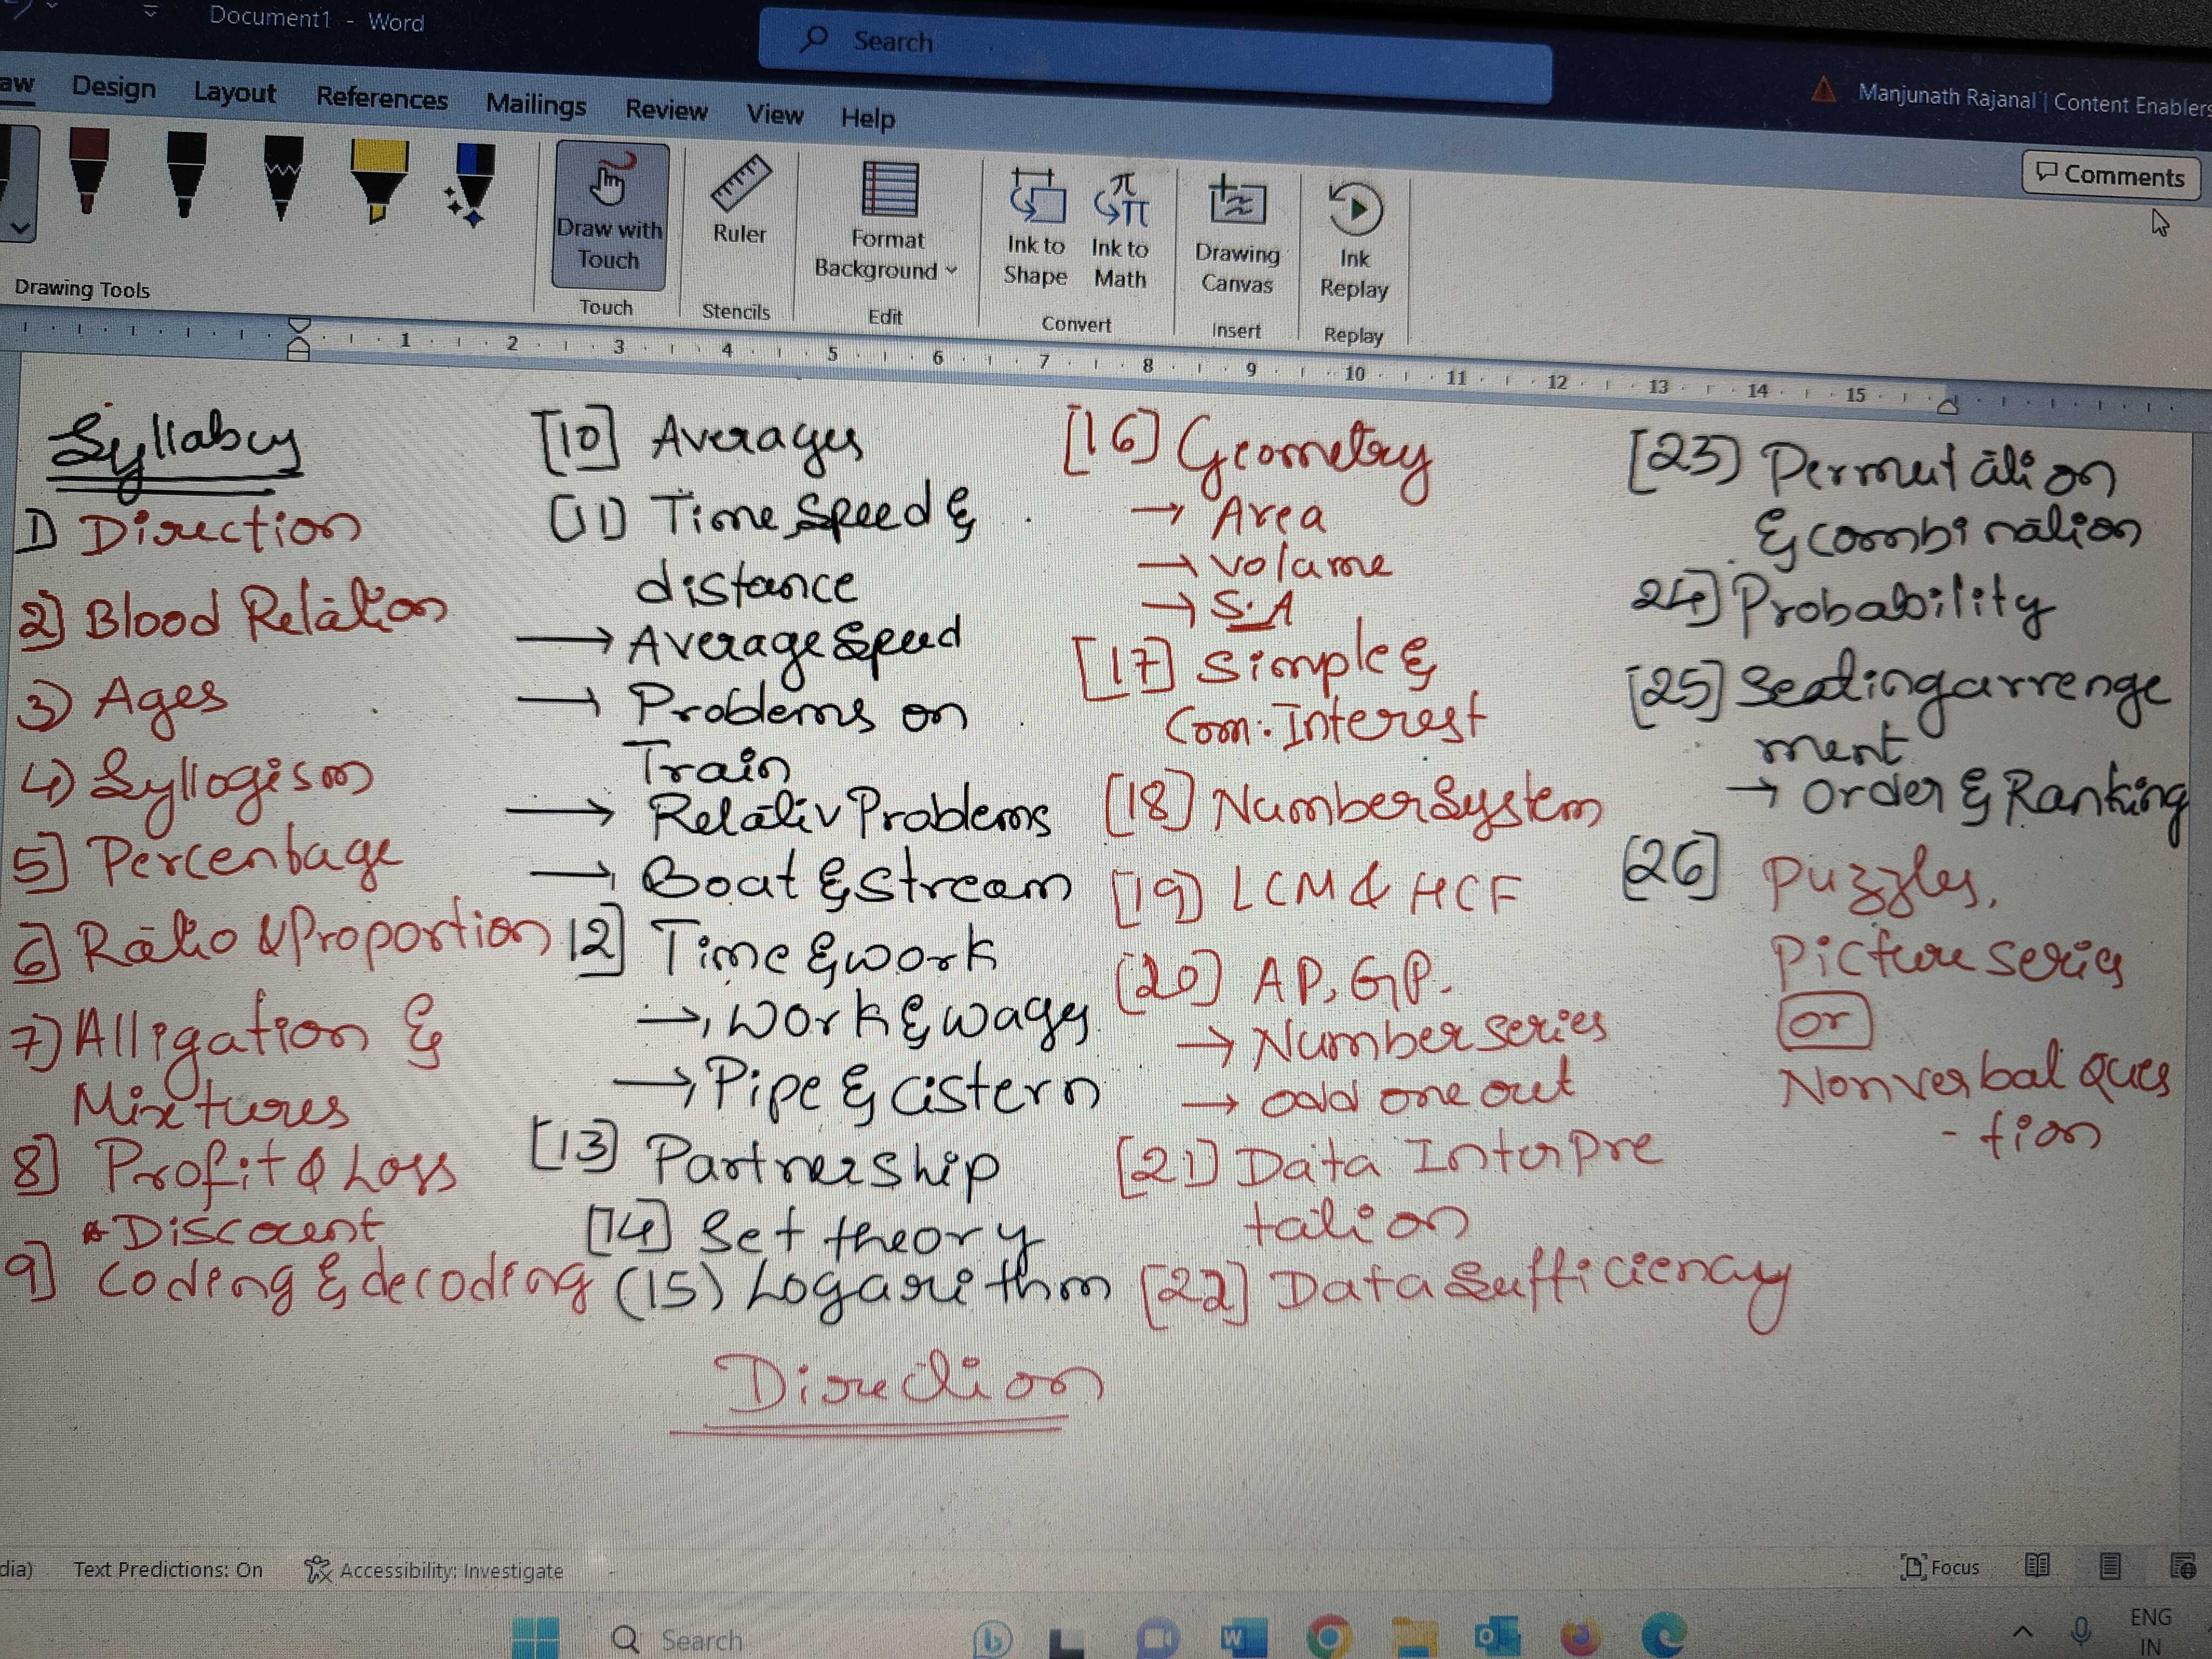 Document1 - Word
Search
Manjunath Rajanal | Content Enablers
Design Layout References Mailings Review View Help
Comments
Drawing Tools
Draw with Touch
Touch
Ruler
Stencils
Format Background
Edit
Ink to Shape
Ink to Math
Convert
Drawing Canvas
Insert
Ink Replay
Replay
1 2 3 4 5 6 7 8 9 10 11 12 13 14 15
Syllabus
1) Direction
2) Blood Relation
3) Ages
4) Syllogism
5) Percentage
6) Ratio & Proportion
7) Alligation &
Mixtures
8) Profit & Loss
* Discount
9) Coding & decoding
[10] Averages
(11) Time Speed &
distance
→ Average Speed
→ Problems on
Train
→ Relativ Problems
→ Boat & Stream
12] Time & work
→ work & wages
→ Pipe & Cistern
[13] Partnership
[14] Set theory
(15) Logarithm
[16] Geometry
→ Area
→ Volume
→ S.A
[17] Simple &
Com. Interest
[18] Number System
[19] LCM & HCF
(20) AP, GP.
→ Number series
→ odd one out
[21] Data Interpre
tation
[22] Data Sufficiency
[23] Permutation
& combination
24] Probability
[25] Seating arrenge
ment
→ Order & Ranking
[26] Puzzles,
Picture series
or
Non verbal ques
- tion
Direction
dia) Text Predictions: On Accessibility: Investigate
Focus
Search
ENG
IN